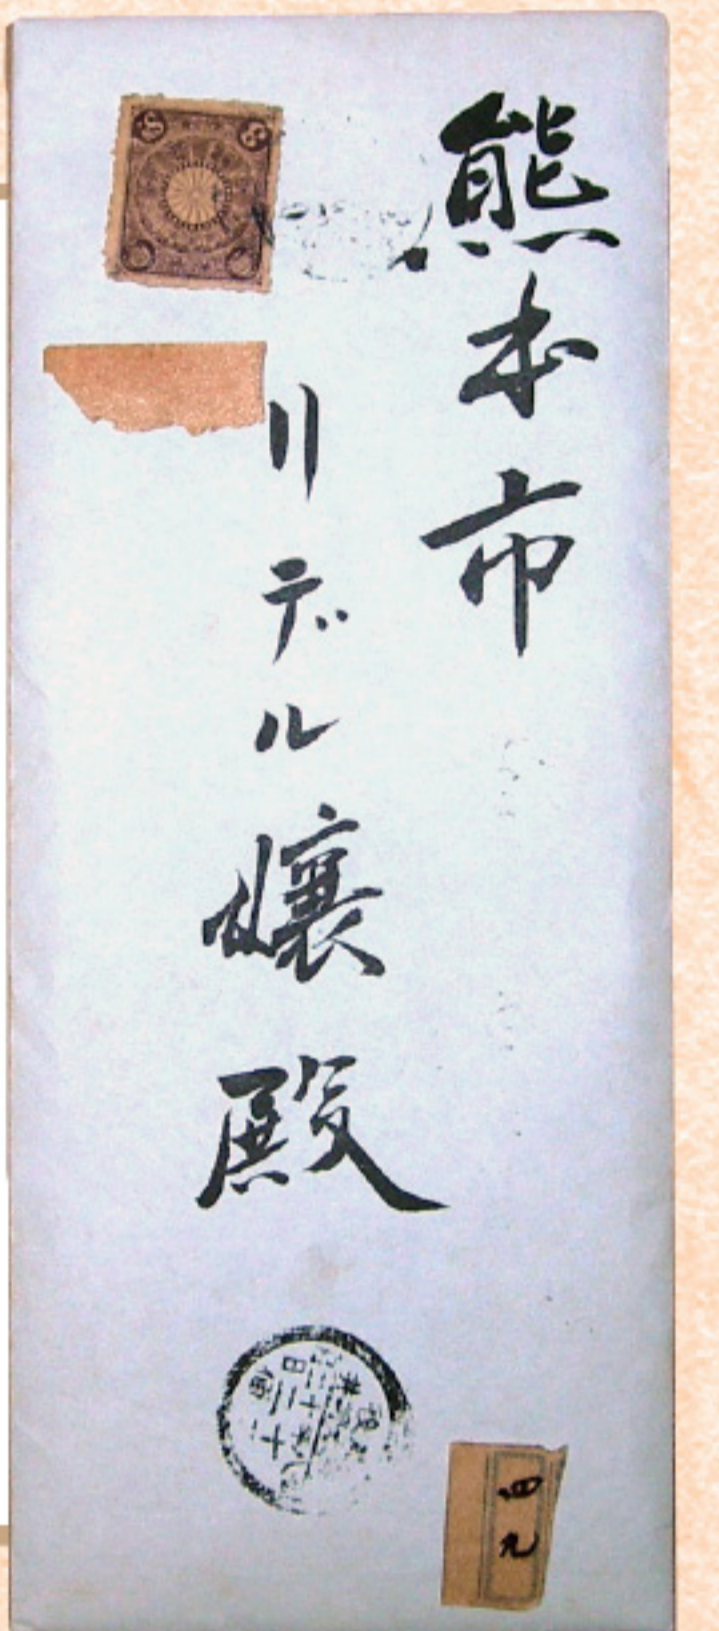 熊本市
リデル嬢殿
四九